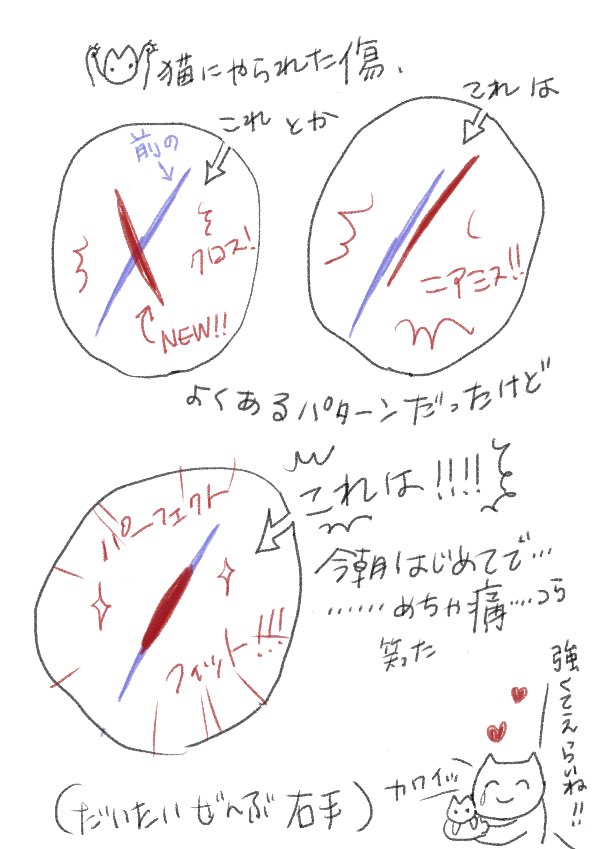 猫にやられた傷、
これとか
これは
前の
クロス!
NEW!!
ニアミス!!
よくあるパターンだったけど
これは!!!!
パーフェクト
フィット!!!
今朝はじめてで…
……めちゃ痛…つら
笑った
強くてえらいね!!
カワイッ
(だいたいぜんぶ右手)